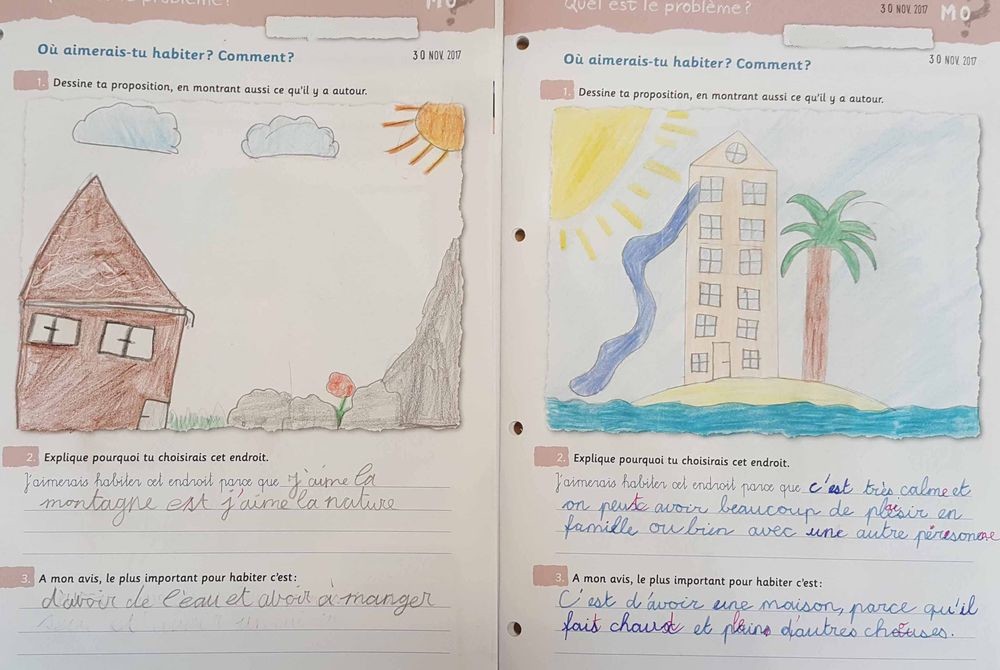 problème?
MO
Où aimerais-tu habiter? Comment?
30 NOV. 2017
1. Dessine ta proposition, en montrant aussi ce qu'il y a autour.
2. Explique pourquoi tu choisirais cet endroit.
J'aimerais habiter cet endroit parce que j'aime la
montagne est j'aime la nature
3. A mon avis, le plus important pour habiter c'est:
d'avoir de l'eau et avoir à manger
Quel est le problème?
30 NOV. 2017
MO?
Où aimerais-tu habiter? Comment?
30 NOV. 2017
1. Dessine ta proposition, en montrant aussi ce qu'il y a autour.
2. Explique pourquoi tu choisirais cet endroit.
J'aimerais habiter cet endroit parce que c'est très calme et
on peut avoir beaucoup de plaisir en
famille ou bien avec une autre personne
3. A mon avis, le plus important pour habiter c'est:
C'est d'avoir une maison, parce qu'il
fait chaud et pleins d'autres choses.